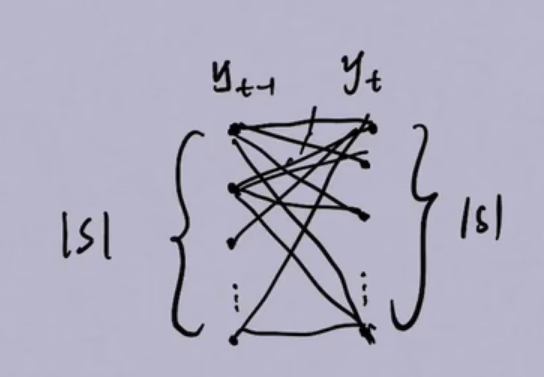 y_{t-1} y_t
|S| |S|